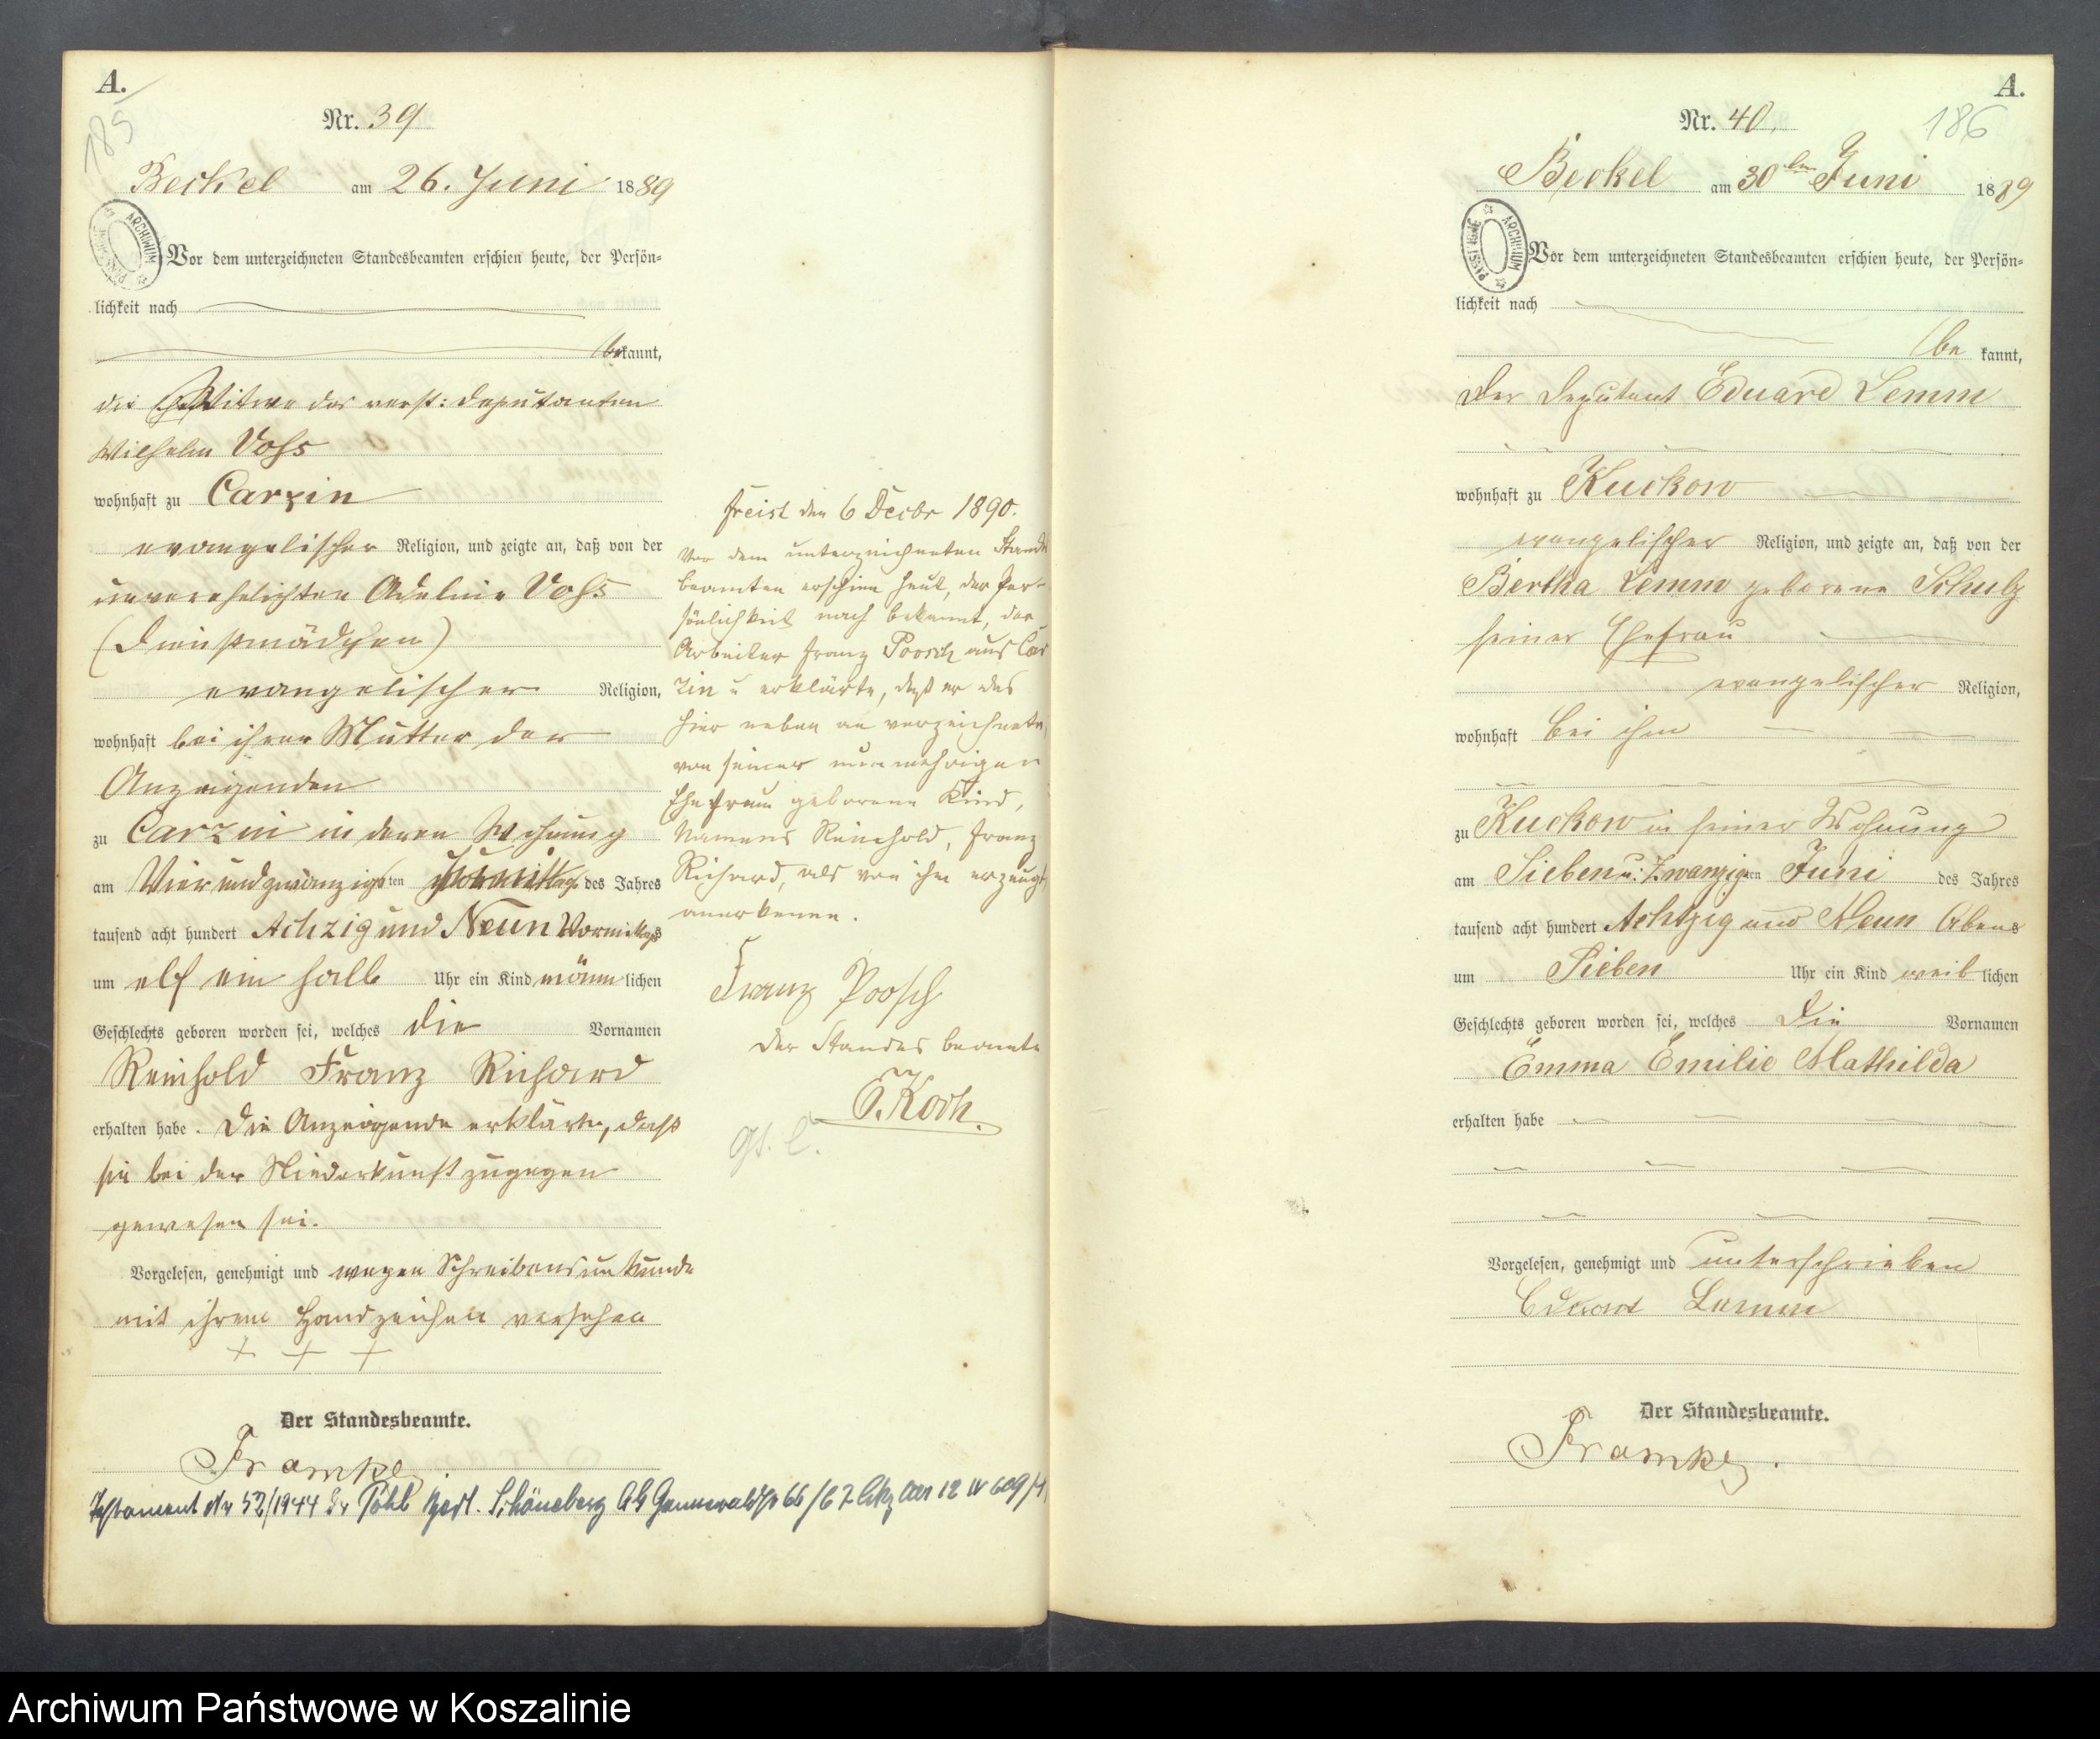 A.
185
Nr. 39
Beckel am 26. Juni 1889
ARCHIWUM PAŃSTWOWE
Vor dem unterzeichneten Standesbeamten erschien heute, der Persön-
lichkeit nach
bekannt,
die Witwe des verst: Deputanten
Wilhelm Vohs
wohnhaft zu Carzin
evangelischer Religion, und zeigte an, daß von der
unverehelichten Adeline Vohs
(Dienstmädchen)
evangelischer Religion,
wohnhaft bei ihrer Mutter der
Anzeigenden
zu Carzin in deren Wohnung
am Vierundzwanzigsten des Jahres
tausend acht hundert Achzig und Neun Vormittags
um elf ein halb Uhr ein Kind männlichen
Geschlechts geboren worden sei, welches die Vornamen
Reinhold Franz Richard
erhalten habe. Die Anzeigende erklärte, daß
sie bei der Niederkunft zugegen
gewesen sei.
Vorgelesen, genehmigt und wegen Schreibensunkunde
mit ihrem Handzeichen versehen
+ + +
Der Standesbeamte.
Framke
Testament Nr 52/1944 Dr Pohl Schöneberg
Freist den 6 Decbr 1890.
Vor dem unterzeichneten Stands
beamten erschien heut, der Per-
sönlichkeit nach bekannt, der
Arbeiter Franz Poosch aus Car
zin u erklärte, daß er das
hier neben an verzeichnete,
von seiner nunmehrigen
Ehefrau geborene Kind,
Namens Reinhold, Franz
Richard, als von ihm erzeugt
anerkenne.
Franz Poosch
Der Standes beamte
Koch.
A.
186
Nr. 40.
Beckel am 30ten Juni 1889
ARCHIWUM PAŃSTWOWE
Vor dem unterzeichneten Standesbeamten erschien heute, der Persön-
lichkeit nach
be kannt,
der Deputant Eduard Lemm
wohnhaft zu Kuckow
evangelischer Religion, und zeigte an, daß von der
Bertha Lemm geborene Schulz
seiner Ehefrau
evangelischer Religion,
wohnhaft bei ihm
zu Kuckow in seiner Wohnung
am Sieben u: Zwanzigten Juni des Jahres
tausend acht hundert Achtzig und Neun Abens
um Sieben Uhr ein Kind weiblichen
Geschlechts geboren worden sei, welches die Vornamen
Emma Emilie Mathilda
erhalten habe
Vorgelesen, genehmigt und unterschrieben
Eduard Lemm
Der Standesbeamte.
Framke.
Archiwum Państwowe w Koszalinie